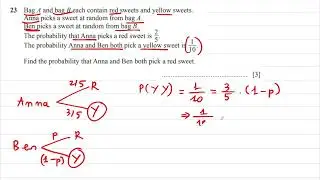 23 Bag A and bag B each contain red sweets and yellow sweets.
Anna picks a sweet at random from bag A.
Ben picks a sweet at random from bag B.
The probability that Anna picks a red sweet is 2/5.
The probability Anna and Ben both pick a yellow sweet is 1/10
Find the probability that Anna and Ben both pick a red sweet.
[3]
Anna
2/5 R
3/5 Y
Ben
P R
(1-P) Y
P(YY) = 1/10 = 3/5 · (1-P)
⇒ 1/10